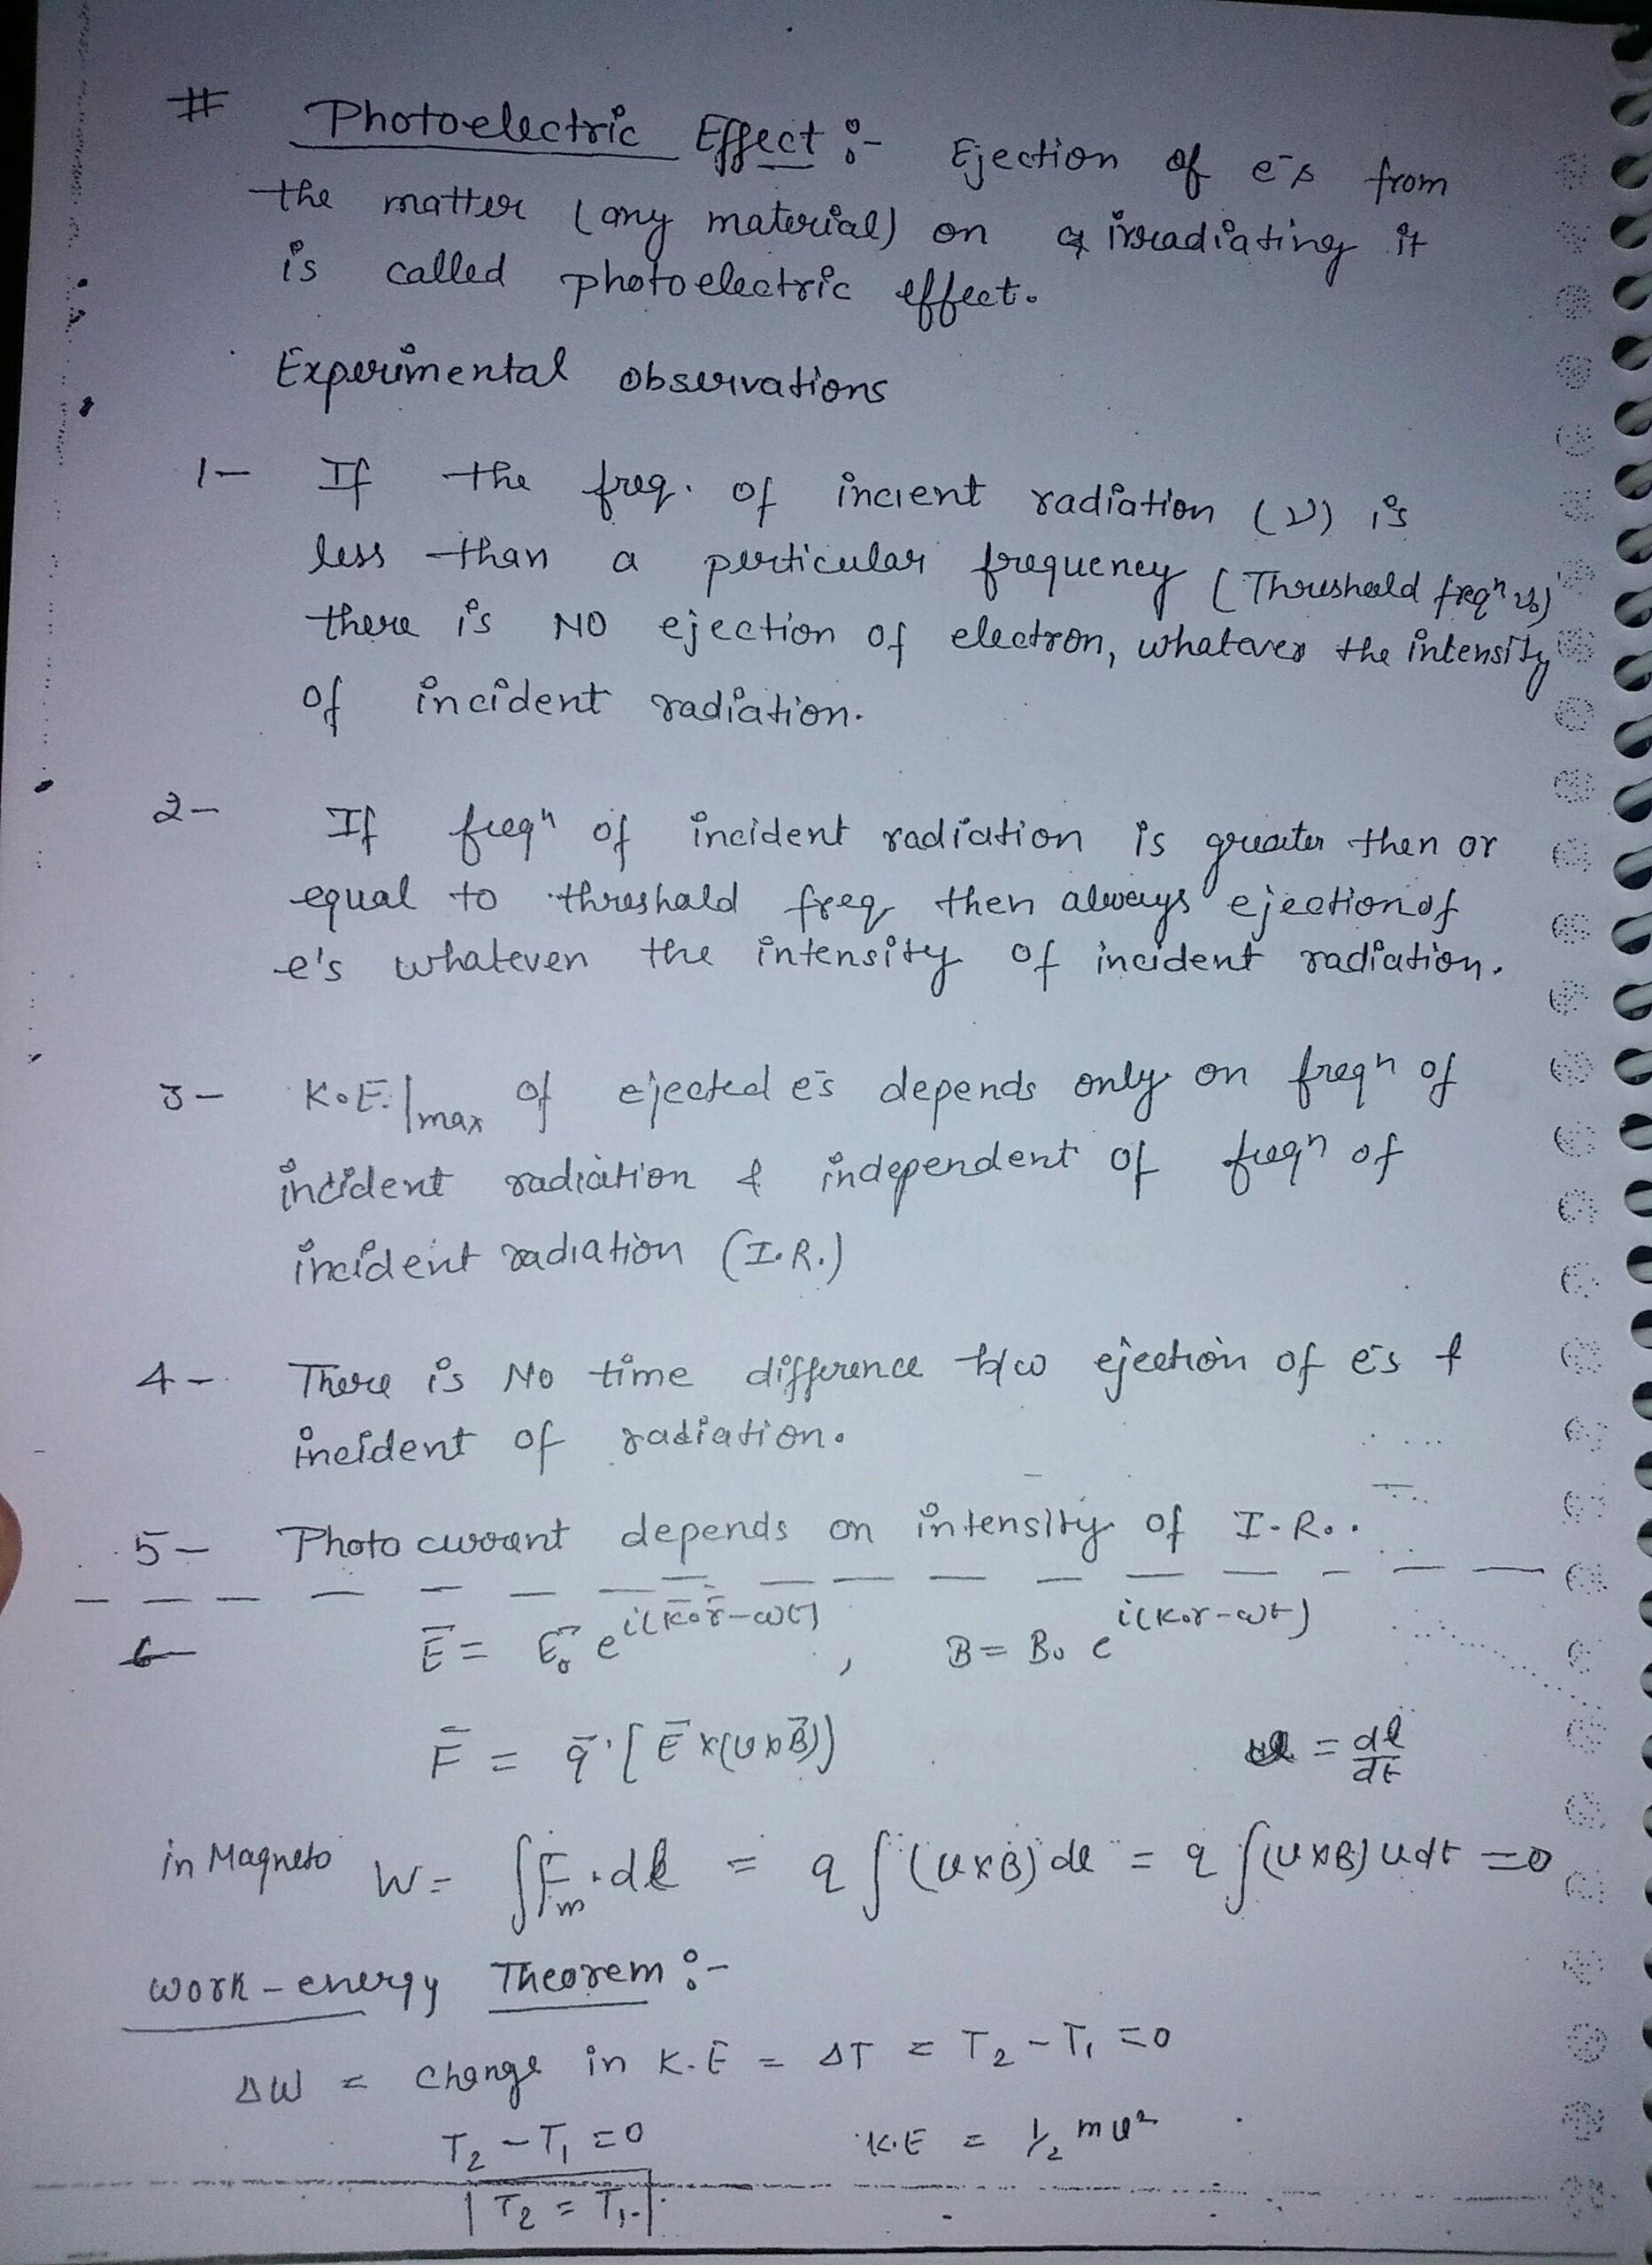 # Photoelectric Effect :- Ejection of e⁻s from
the matter (any material) on irradiating it
is called photoelectric effect.
Experimental observations
1- If the freq. of incient radiation (ν) is
less than a perticular frequency (Threshold freqⁿ ν₀)
there is NO ejection of electron, whatever the intensity
of incident radiation.
2- If freqⁿ of incident radiation is greater then or
equal to threshald freq then always ejection of
e's whatever the intensity of incident radiation.
3- K.E.|max of ejected e⁻s depends only on freqⁿ of
incident radiation & independent of freqⁿ of
incident radiation (I.R.)
4- There is No time difference b/w ejection of e⁻s &
incident of radiation.
5- Photo current depends on intensity of I.R..
6 E̅ = E⃗₀ e^i(K̅.r̅-ωt), B = B₀ e^i(K.r-ωt)
F̅ = q̅ [E̅ x(υ x B⃗)] = dl/dt
in Magneto W = ∫Fm.dl = q ∫(υxB) dl = q ∫(υxB) υdt = 0
work-energy Theorem :-
ΔW = change in K.E = ΔT = T₂ - T₁ = 0
T₂ - T₁ = 0 K.E = 1/2 mυ²
T₂ = T₁.